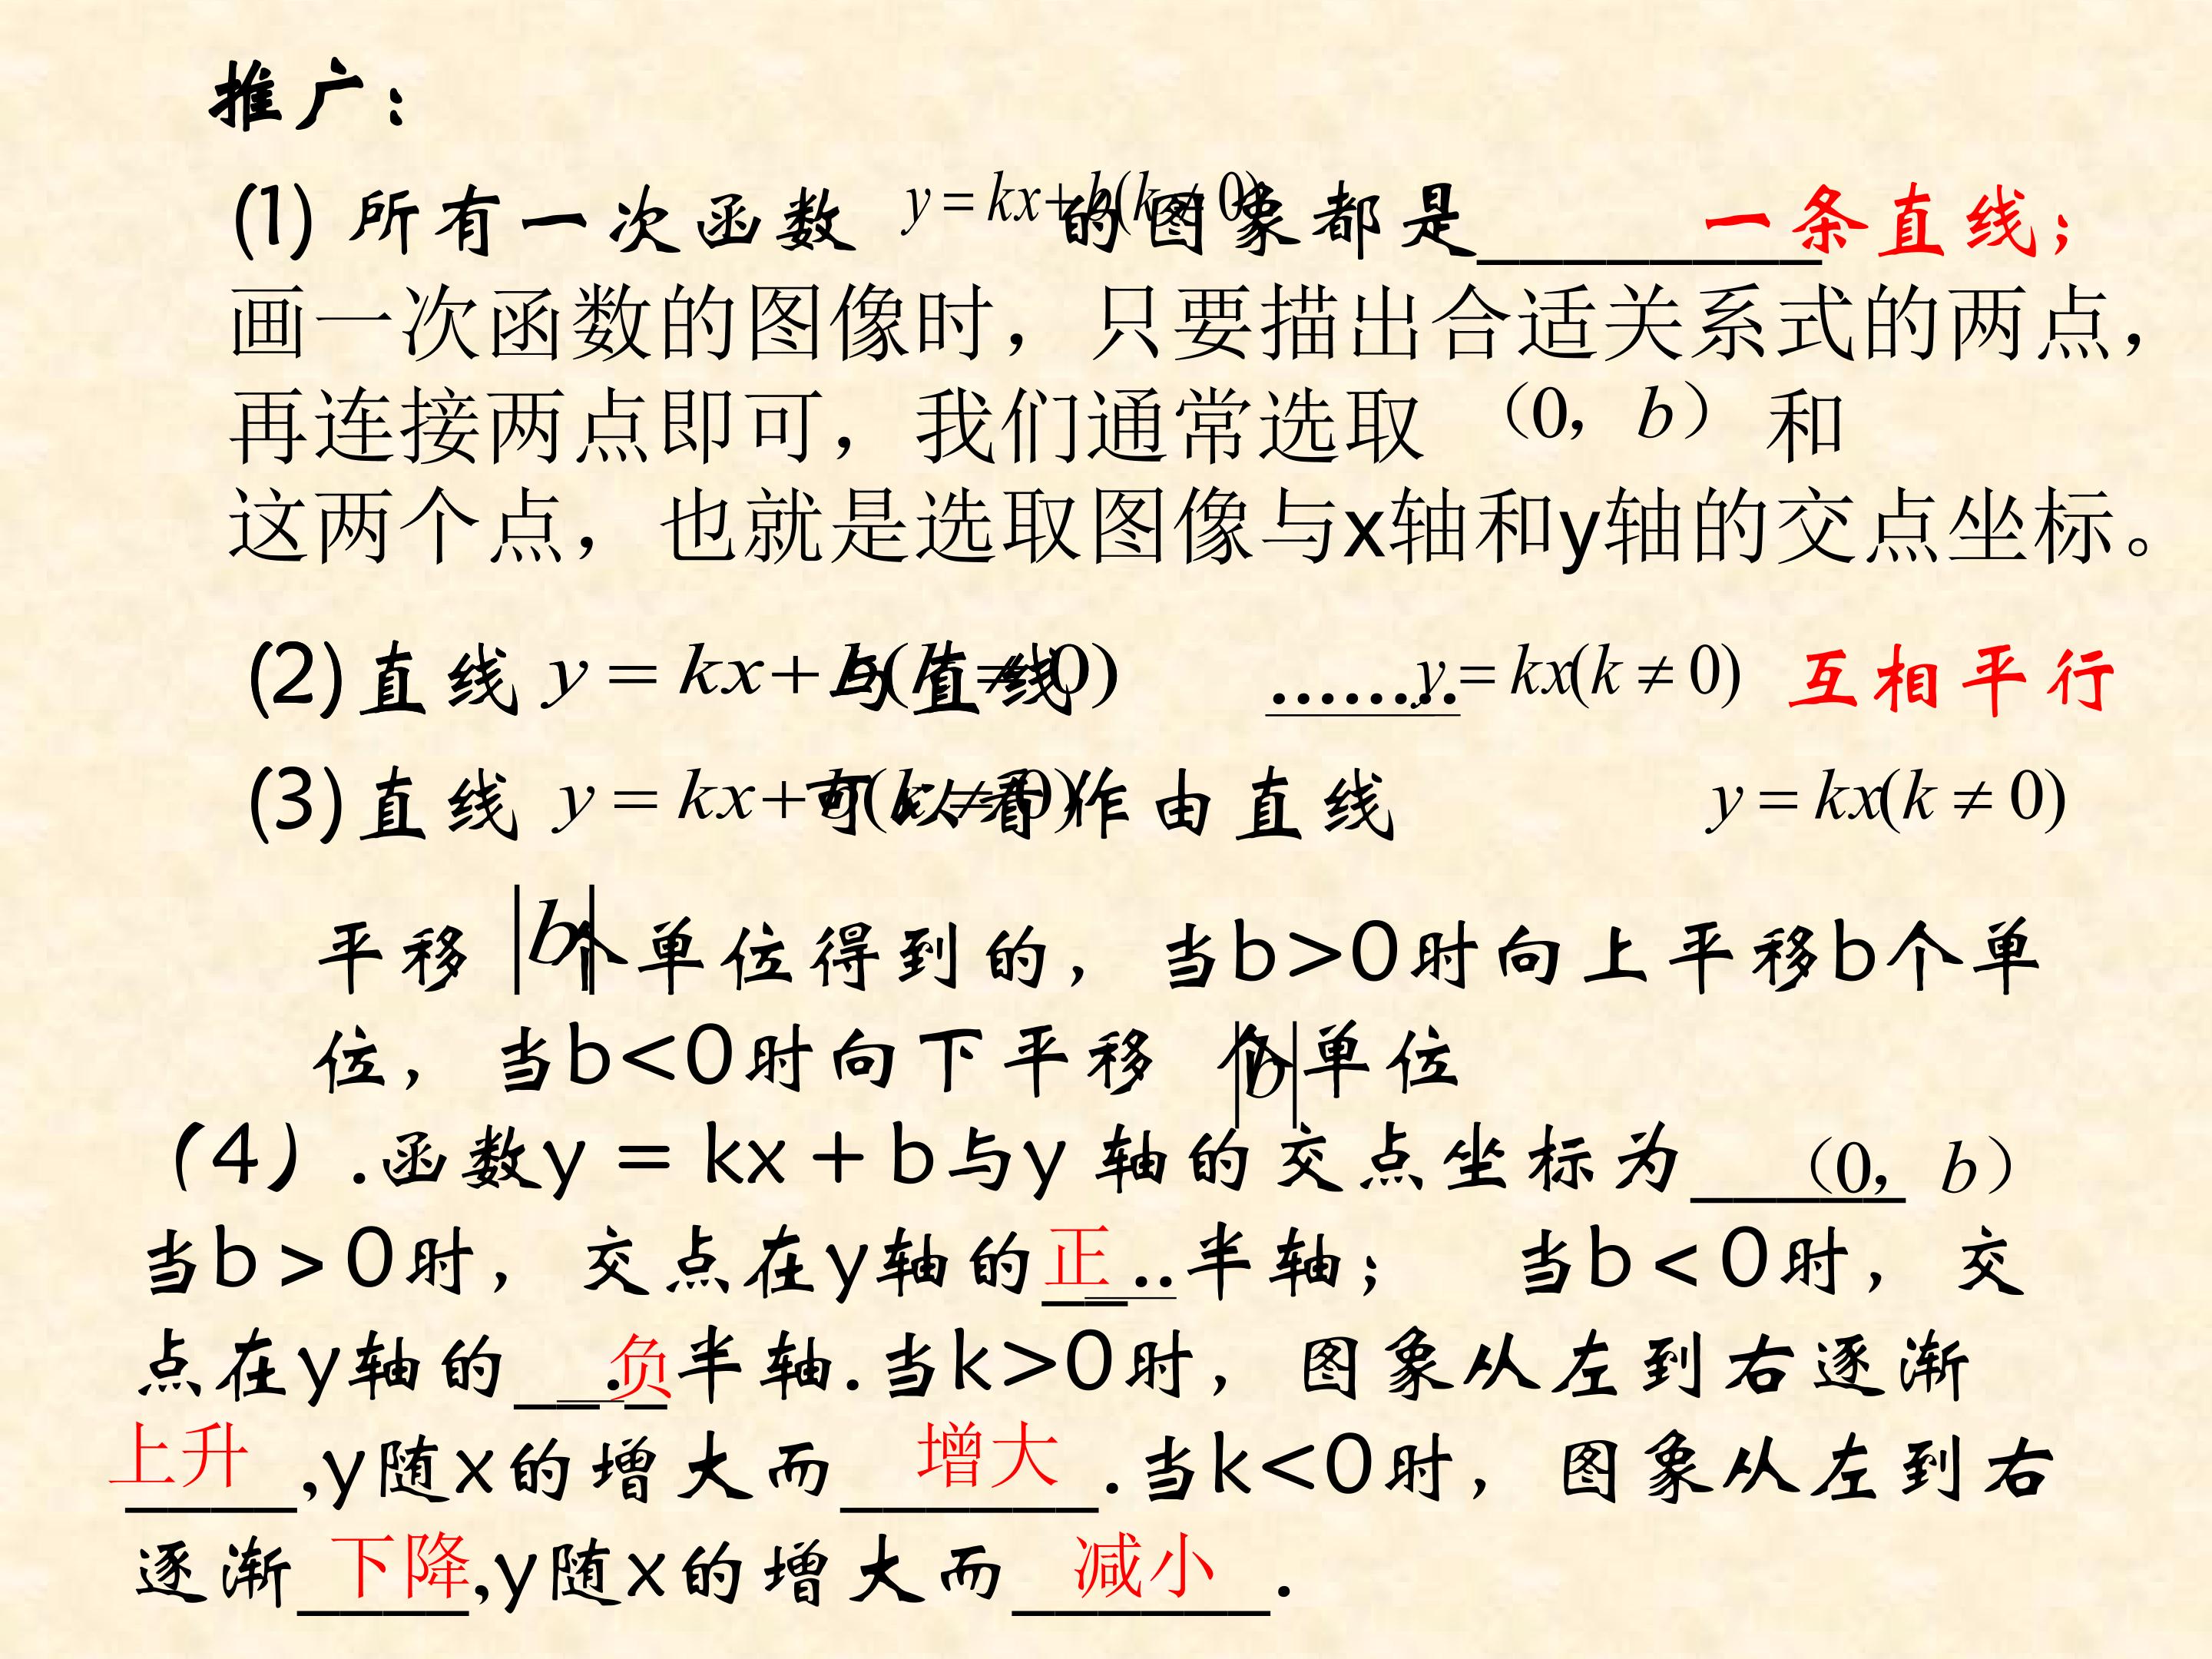 推广:
(1) 所有一次函数 y = kx + b(k ≠ 0) 的图象都是________ 一条直线;
画一次函数的图像时，只要描出合适关系式的两点，
再连接两点即可，我们通常选取 （0，b） 和
这两个点，也就是选取图像与x轴和y轴的交点坐标。
(2)直线 y = kx + b(k ≠ 0) 与直线 ........ y = kx(k ≠ 0) 互相平行
(3)直线 y = kx + b(k ≠ 0) 可以看作由直线 y = kx(k ≠ 0)
平移 |b| 个单位得到的，当b>0时向上平移b个单
位，当b<0时向下平移 |b| 个单位
（4）.函数y＝kx＋b与y 轴的交点坐标为_____ （0，b）
当b＞0时，交点在y轴的 正 ..半轴； 当b＜0时，交
点在y轴的 __._ 负 半轴.当k>0时，图象从左到右逐渐
上升 ____,y随x的增大而______ 增大 .当k<0时，图象从左到右
逐渐____ 下降 ,y随x的增大而______ 减小 .